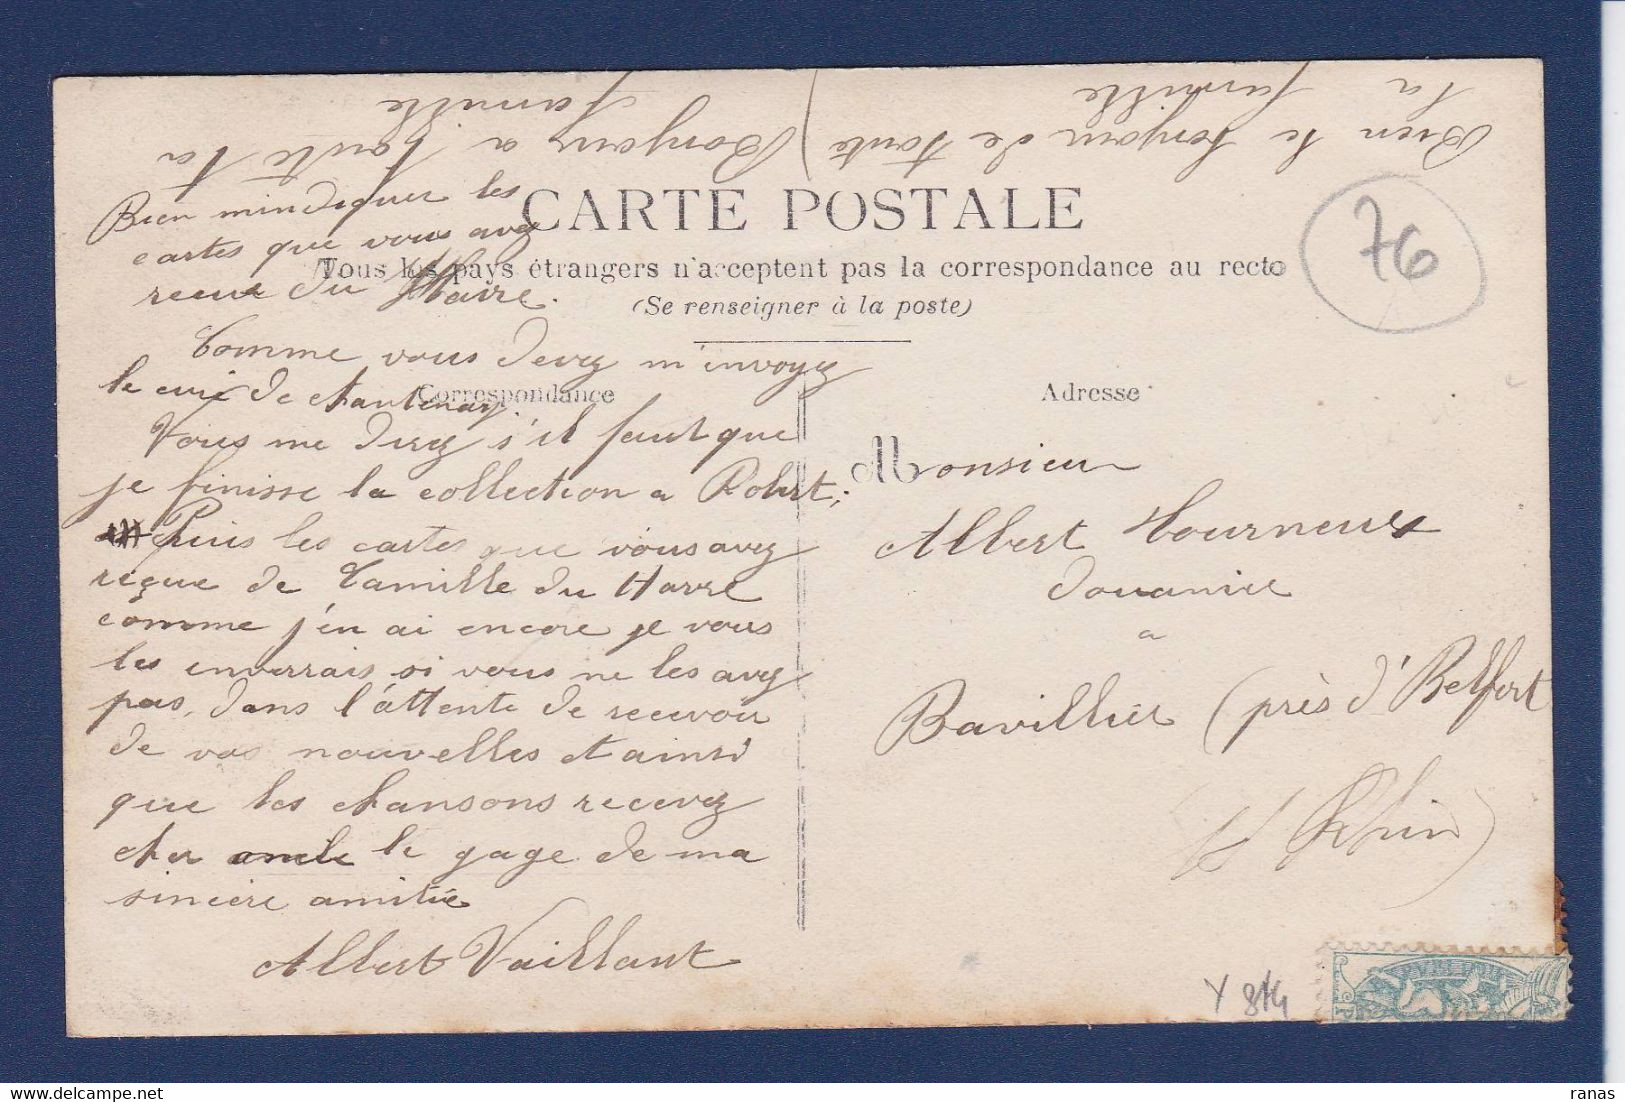 Bien le bonjour de toute
la famille
Bonjour a toute la
famille
CARTE POSTALE
Tous les pays étrangers n'acceptent pas la correspondance au recto
(Se renseigner à la poste)
Correspondance
Adresse
Bien mindiquer les
cartes que vous avez
recue du Havre.
Comme vous devez m'envoyez
le cuir de chantenay
Vous me direz s'il faut que
je finisse la collection a Robert;
Puis les cartes que vous avez
reçue de Camille du Havre
comme j'en ai encore je vous
les enverrais si vous ne les avez
pas, dans l'attente de recevoir
de vos nouvelles et ainsi
que les chansons recevez
cher oncle le gage de ma
sincère amitié
Albert Vaillant
Monsieur
Albert Tourneux
Douanier
a
Bavillier (près d'Belfort
Ht Rhin)
76
Y 814
ranas